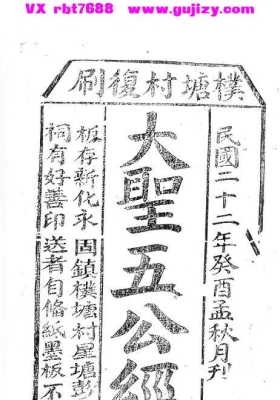 VX rbt7688 www.gujizy.com
樸塘村復刷
民國二十二年癸酉孟秋月刊
大聖五公經
板存新化永固鎮樸塘村星塘彭
祠有好善印送者自偹紙墨板不